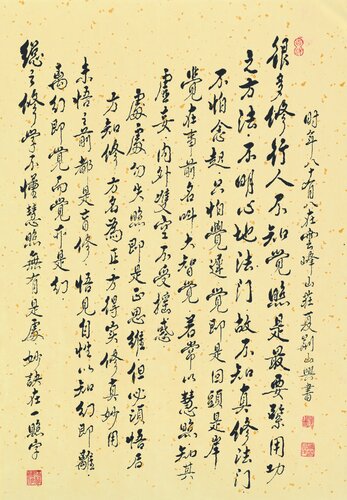 时年八十有八在雲峰山莊夏荆山興書
很多修行人不知覺照是最要緊用功
之方法不明心地法門故不知真修法門
不怕念起只怕覺遲覺即是回頭是岸
覺在事前名叫大智覺若常以慧照知其
虛妄内外雙空不受搖惑
處處勿失照即是正思維但必須悟后
方知修方名為正方得实修真妙用
未悟之前都是盲修悟見自性以知幻即離
离幻即覺而覺亦是幻
總之修學不懂慧照無有是處妙訣在一照字